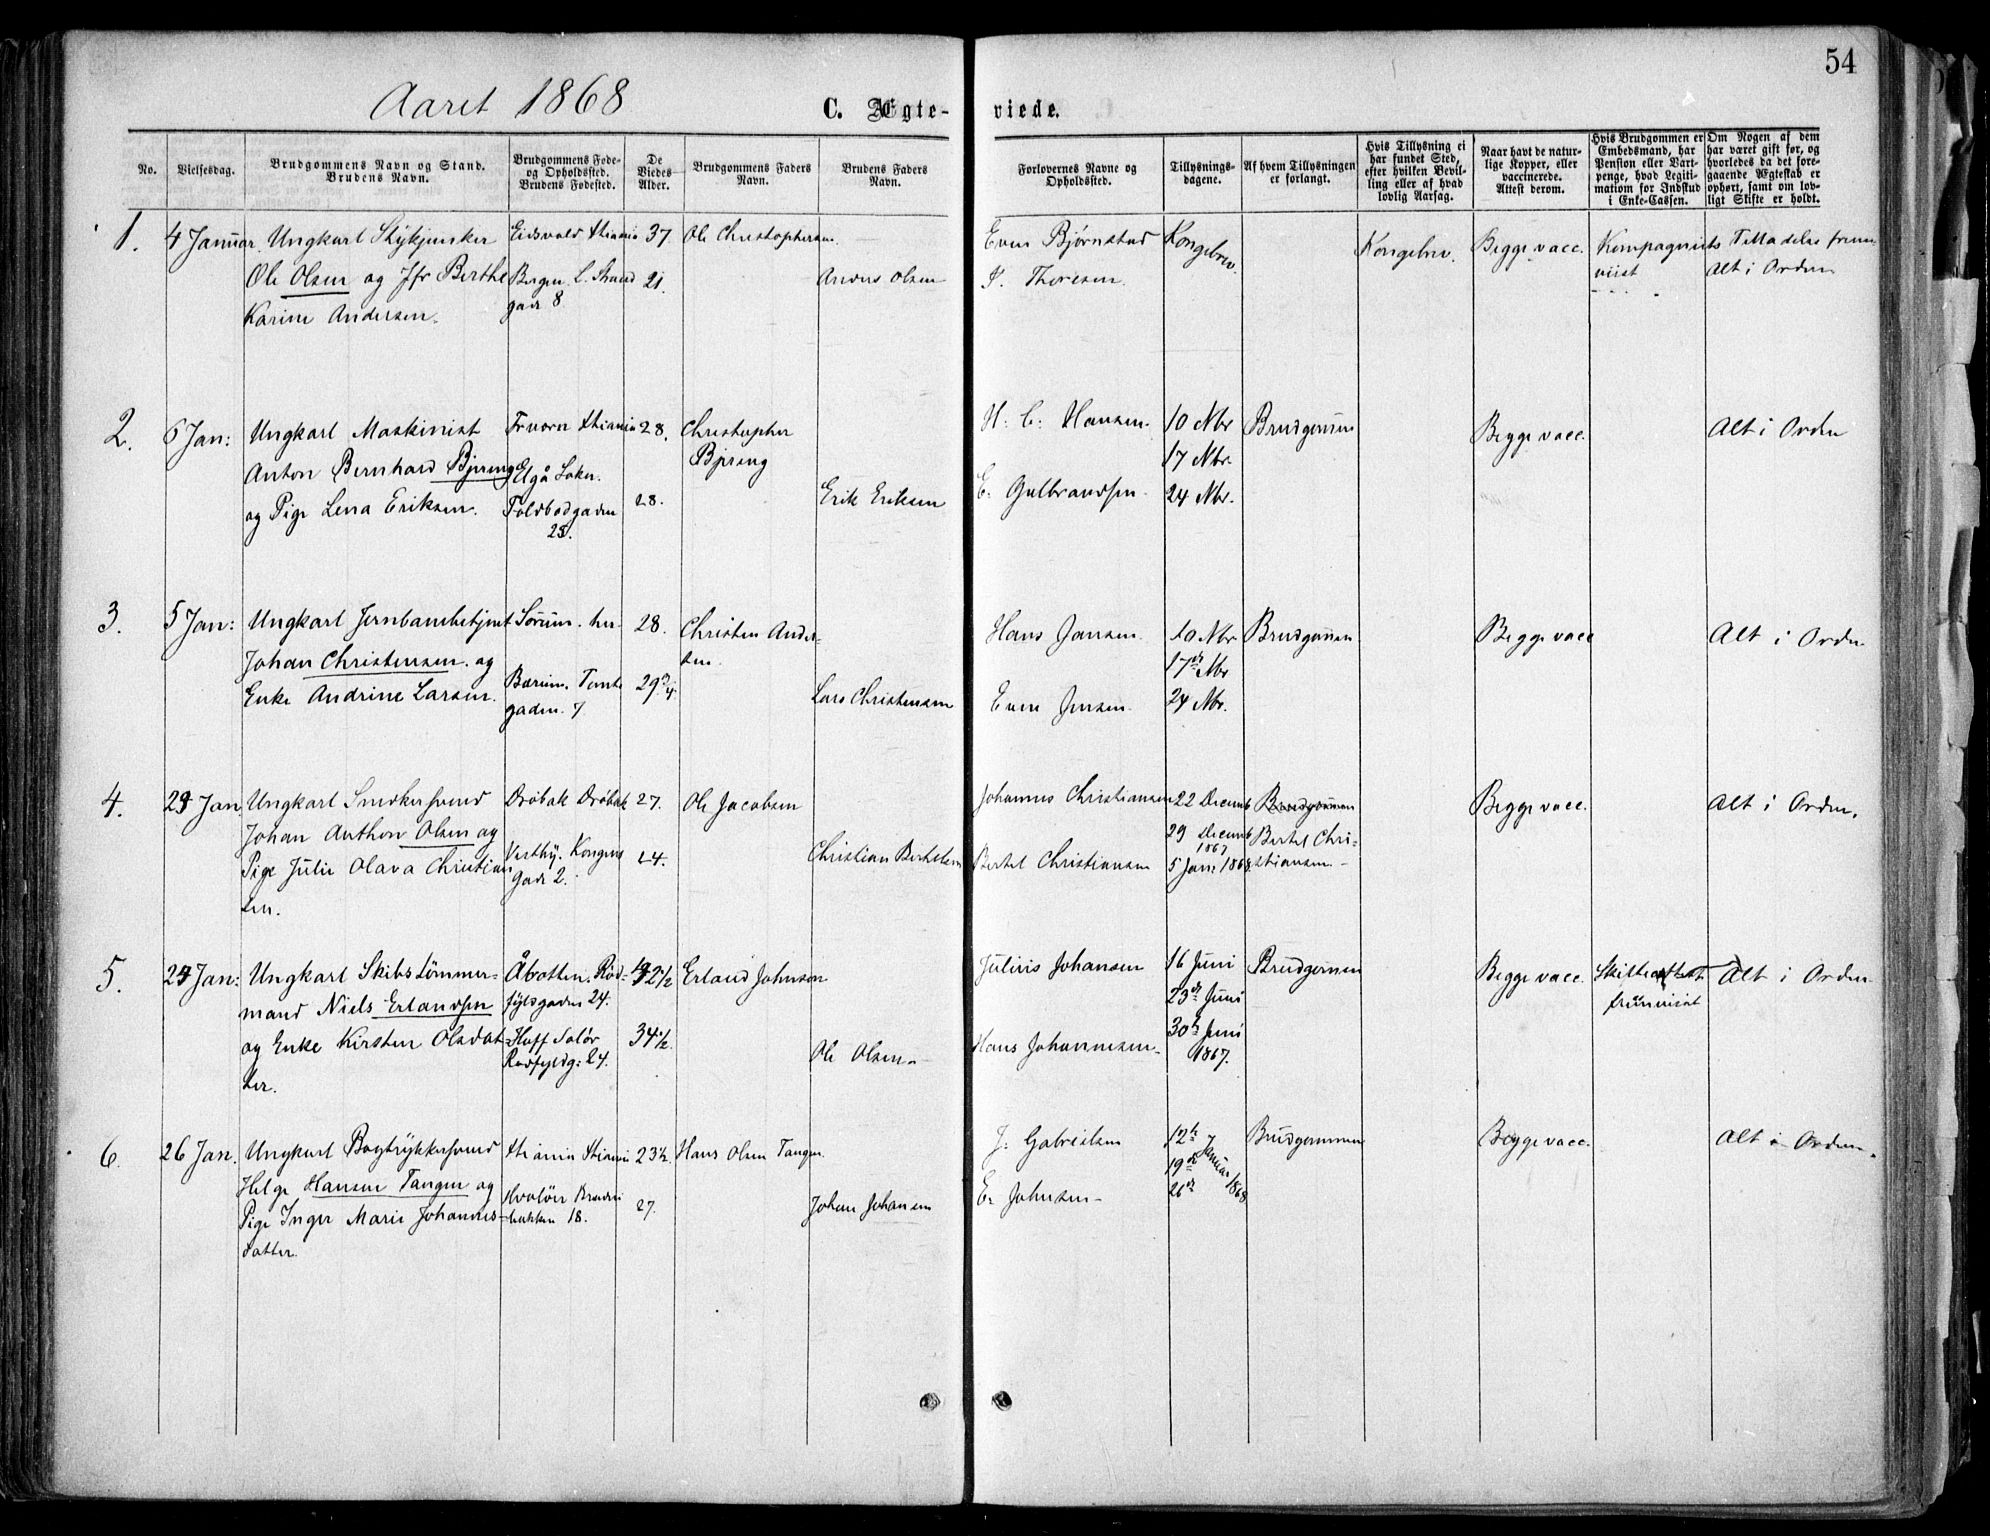 54
Aaret 1868
C. Ægte-
viede.
No.
Vielsesdag.
Brudgommens Navn og Stand.
Brudens Navn.
Brudgommens Føde-
og Opholdssted.
Brudens Fødested.
De
Viedes
Alder.
Brudgommens Faders
Navn.
Brudens Faders
Navn.
Forlovernes Navne og
Opholdssted.
Tillysnings-
dagene.
Af hvem Tillysningen
er forlangt.
Hvis Tillysning ei
har fundet Sted,
efter hvilken Bevil-
ling eller af hvad
lovlig Aarsag.
Naar havt de natur-
lige Kopper, eller
vaccinerede.
Attest derom.
Hvis Brudgommen er
Embedsmand, har
Pension eller Vart-
penge, hvad Legiti-
mation for Indskud
i Enke-Cassen.
Om Nogen af dem
har været gift før, og
hvorledes da det fore-
gaaende Ægteskab er
ophørt, samt om lov-
ligt Skifte er holdt.
1.
4 Januar
Ungkarl Stykjunker
Ole Olsen og Jfr Berthe
Karine Andersen.
Eidsvold Xtiania
Bergen L. Strand
gade 8
37
21.
Ole Christophersen.
Anders Olsen
Even Bjørnstad
P. Thoresen
Kongebrev.
Kongebrev.
Begge vacc.
Kompagniets
viist
Tilladelse frem
Alt i Orden
2.
6 Jan:
Ungkarl Maskinist
Anton Bernhard Bjering
og Pige Lena Eriksen.
Xtiania
Elgå Sokn.
Toldbodgaden
25.
28.
28.
Christopher
Bjering
Erik Eriksen
H. C. Hansen
E. Gulbrandsen
10 Nbr
17 Nbr
24 Nbr.
Brudgommen
Begge vacc.
Alt i Orden
3.
5 Jan:
Ungkarl Jernbanebetjent
Johan Christensen og
Enke Andrine Larsen.
Sørum. her
Bærum. Tomte
gaden. 7
28.
29 3/4.
Christen Ander-
sen.
Lars Christensen
Hans Jansen
Even Jensen
10 Nbr
17de Nbr
24 Nbr.
Brudgommen
Begge vacc
Alt i Orden
4.
Jan
Ungkarl Snedkersvend
Johan Anthon Olsen og
Pige Julie Olava Christian
sen.
Drøbak Drøbak
Vestby. Kongens
Gade 2.
27.
24.
Ole Jacobsen
Christian Bertelsen
Johannes Christiansen
Bertel Christiansen
22 Decemb
29 Decemb
1867
5 Jan: 1868
Brudgommen
Bertel Chri-
stiansen
Begge vacc.
Alt i Orden.
5.
Jan:
Ungkarl Skibstømmer-
mand Niels Erlandsen
og Enke Kirsten Olsdat
ter.
Åbratten. Rød-
fyldsgaden 24.
Hoff Solør
Rødfyldg: 24.
42 1/2
34 1/2
Erland Johnson
Ole Olsen
Julius Johansen
Hans Johannesen
16 Juni
23de Juni
30te Juni
1867.
Brudgommen
Begge vacc.
Skifteattest
fremviist
Alt i Orden
6.
26 Jan.
Ungkarl Bogtrykkersvend
Helge Hansen Tangen og
Pige Inger Marie Johannes-
datter.
Xtiania Xtiania
Hvaløer Brænneri
bakken 18.
23 1/2
27.
Hans Olsen Tangen
Johan Johansen
J. Gabrielsen
E. Johnsen
12te
19de
26de
Januar 1868
Brudgommen
Begge vacc.
Alt i Orden.